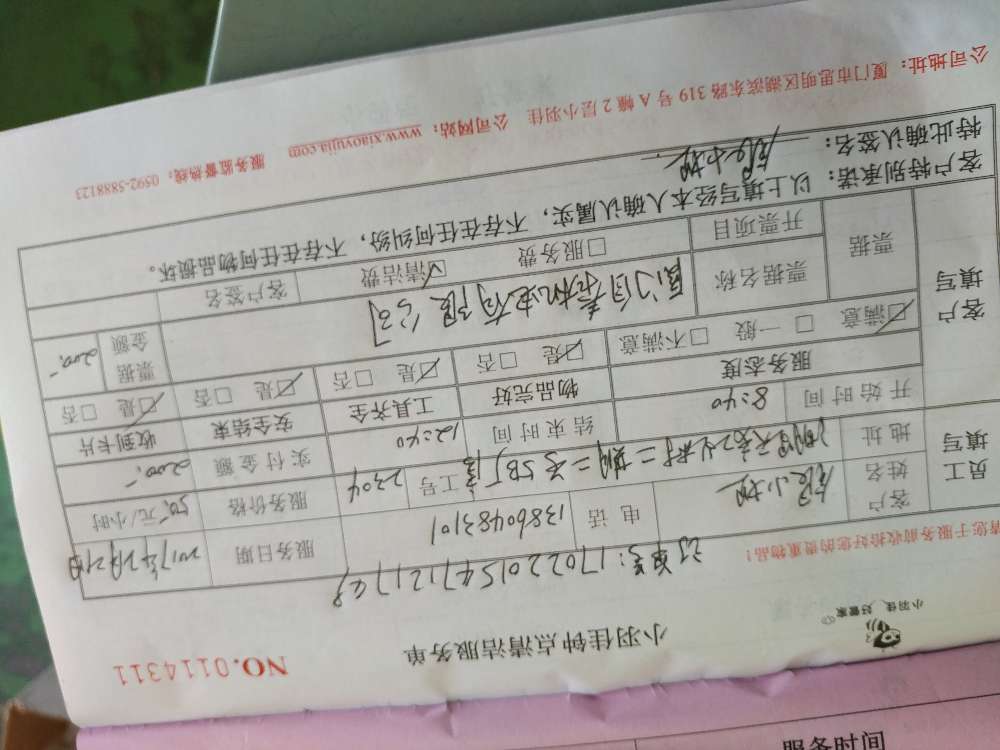 小羽佳 好管家
小羽佳钟点清洁服务单
NO.0114311
请您于服务前收拾好您的贵重物品！
员工填写
客户姓名
电话
13860483101
服务日期
地址
工号
2304
服务价格
50元/小时
开始时间
8:40
结束时间
12:40
实付金额
200.-
服务态度
物品完好
工具齐全
安全结束
收到卡片
客户填写
☑满意 □一般 □不满意
☑是 □否
☑是 □否
☑是 □否
☑是 □否
票据
票据名称
有限公司
票据金额
200.-
开票项目
□服务费 ☑清洁费
客户签名
客户特别承诺：以上填写经本人确认属实，不存在任何纠纷，不存在任何物品损坏。
特此确认签名：
公司地址：厦门市思明区湖滨东路319号A幢2层小羽佳 公司网站：www.xiaoyujia.com 服务监督热线：0592-5888123
服务时间